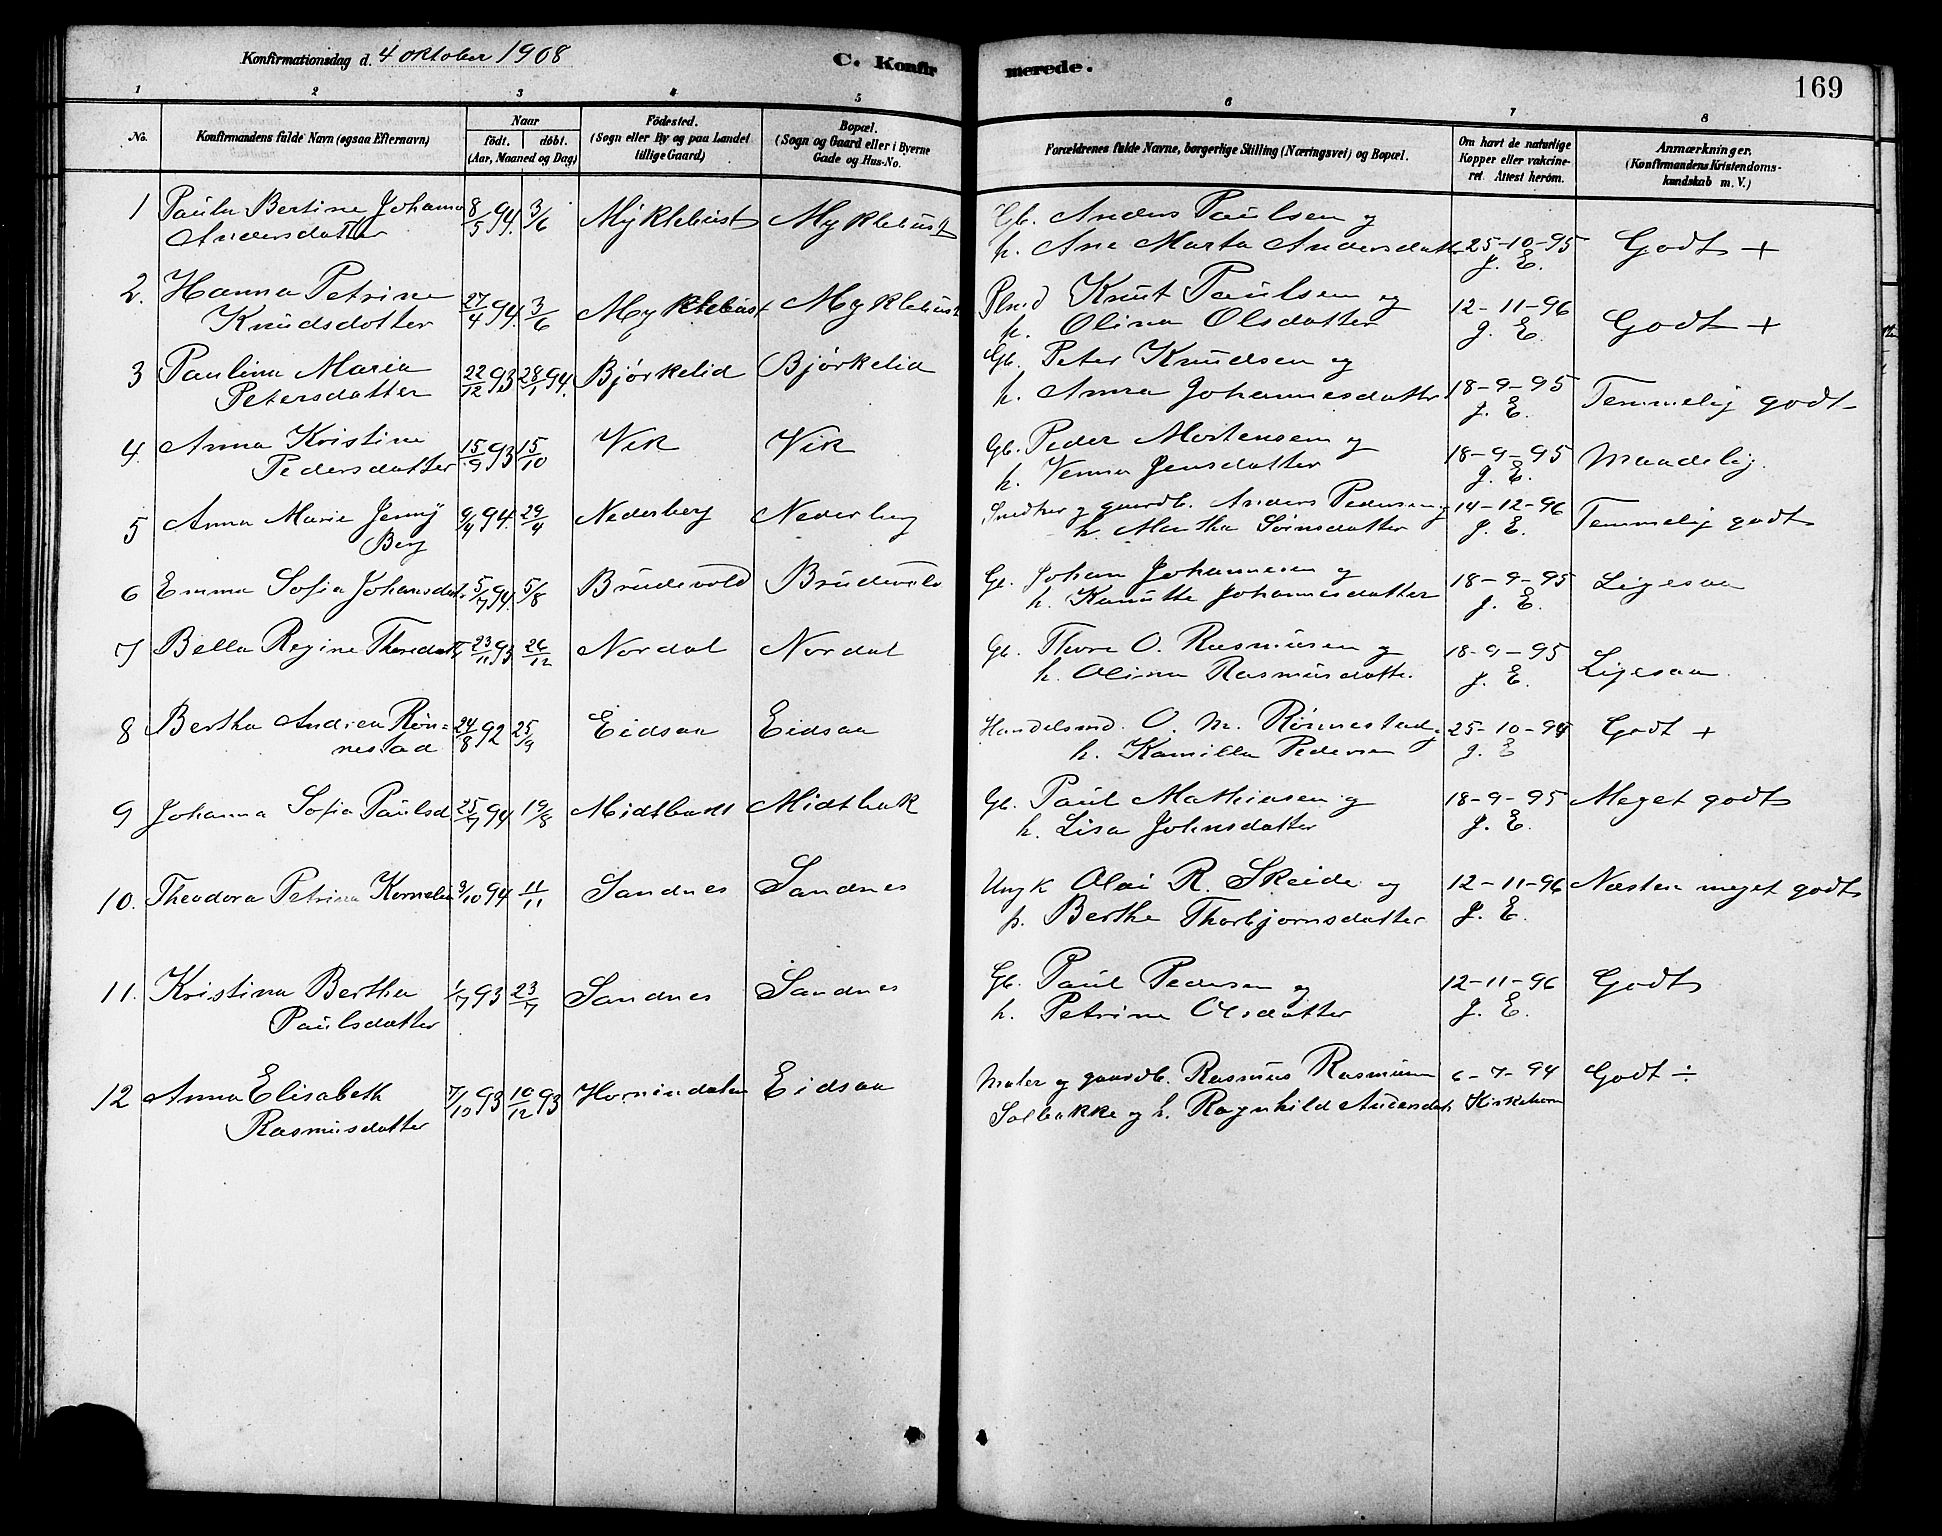 Konfirmationsdag d. 4 oktober 1908
C. Konfirmerede.
169
1 2 3 4 5 6 7 8
No.
Konfirmandens fulde Navn (ogsaa Efternavn)
Naar
födt. döbt.
(Aar, Maaned og Dag)
Födested.
(Sogn eller By og paa Landet
tillige Gaard)
Bopæl.
(Sogn og Gaard eller i Byerne
Gade og Hus-No.
Forældrenes fulde Navne, borgerlige Stilling (Næringsvei) og Bopæl.
Om havt de naturlige
Kopper eller vakcine-
ret. Attest herom.
Anmærkninger.
(Konfirmandens Kristendoms-
kundskab m. V.)
1 Paula Bertine Johanna 8/5 94. 3/6 Myklebust Myklebust Gb. Anders Paulsen og
Andersdatter h. Ane Marta Andersdatter 25-10-95 Godt +
J. E.
2. Hanna Petrine 27/4 94. 3/6 Myklebust Myklebust Knut Paulsen og 12-11-96
Knudsdotter h. Olina Olsdatter J. E. Godt +
3 Paulina Maria 22/12 93 28/1 94. Bjørkelid Bjørkelid Gb. Peter Knudsen og
Petersdatter h. Anna Johannesdatter 18-9-95 Temmelig godt
J. E.
4. Anna Kristine 15/9 93 15/10 Vik Vik Gb. Peder Mortensen og
Pedersdatter h. Jensdatter 18-9-95 Maadelig.
J. E.
5 Anna Marie Jenny 9/4 94. 29/4 Nederberg Nederberg Snedker og gaardb. Anders Pedersen og 14-12-96 Temmelig godt
Berg h. Martha Sørensdatter J. E.
6 Emma Sofia Johansdat. 5/7 94. 5/8 Brudevold Brudevold Gb. Johan Johannesen og 18-9-95 Ligesaa
h. Kanutte Johannesdatter J. E.
7 Bella Regine Thoredatt. 23/11 93 26/12 Nordal Nordal Gb. Thore O. Rasmusen og 18-9-95
h. Olina Rasmusdatte. J. E. Ligesaa.
8 Bertha Andrea Røn= 24/8 92 25/9 Eidsaa Eidsaa Handelsmd. O. M. Rønnestad og 25-10-94 Godt +
nestad h. Kamilla Pedersen J. E
9 Johanna Sofia Paulsd 25/7 94 19/8 Midtbak Midtbak Gb. Paul Mathiasen og 18-9-95 Meget godt
h. Lisa Johnsdatter J. E.
10. Theodora Petrina Kornelia 3/10 94. 11/11 Sandnes Sandnes Ungk Olai R. Skeide og 12-11-96 Næsten meget godt
p. Berthe Thorbjørnsdatter J. E.
11. Kristina Bertha 1/7 93 23/7 Sandnes Sandnes Gb. Paul Pedersen og 12-11-96 Godt
Paulsdatter h. Petrine Olsdatter J. E.
12 Anna Elisabeth 7/10 93 10/12 93 Hornindalen Eidsaa Maler og gaardb. Rasmus Rasmusen 6-7-94 Godt ÷
Rasmusdatter Solbakke og h. Ragnhild Andersdat.